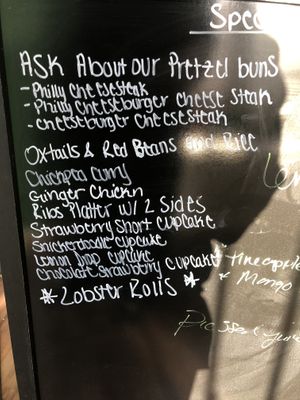 Spec
ASK About our Pretzel buns
- Philly cheesesteak
- Philly Cheeseburger cheese steak
- cheeseburger cheesesteak
Oxtails & Red Beans and Rice
Chickpea Curry
Ginger Chickn
Ribs Platter w/ 2 sides
Strawberry Short Cupcake
Snickerdoodle Cupcake
Lemon Drop Cupcake
Chocolate Strawberry Cupcake
Pineapple
& Mango
* Lobster Rolls *